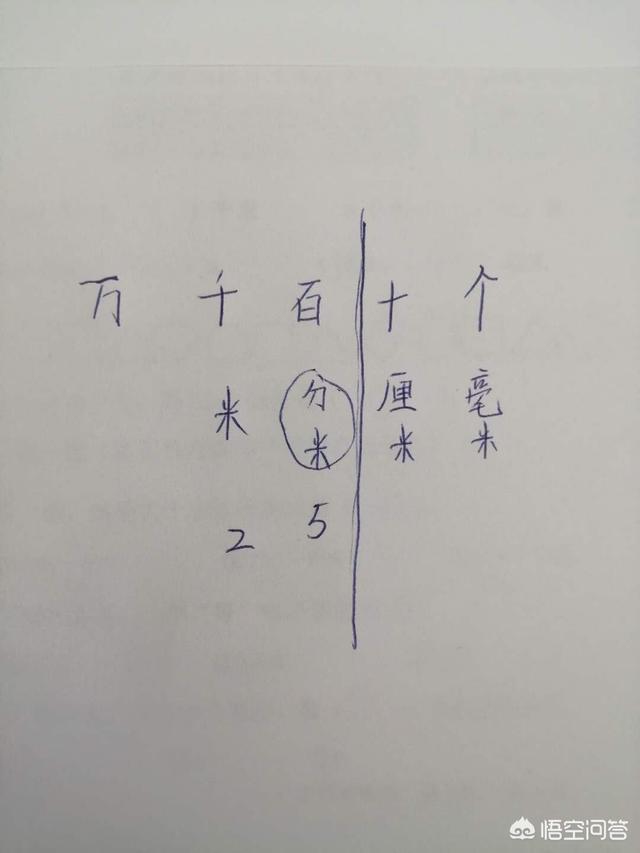 万 千 百 十 个
米 分米 厘米 毫米
2 5
悟空问答